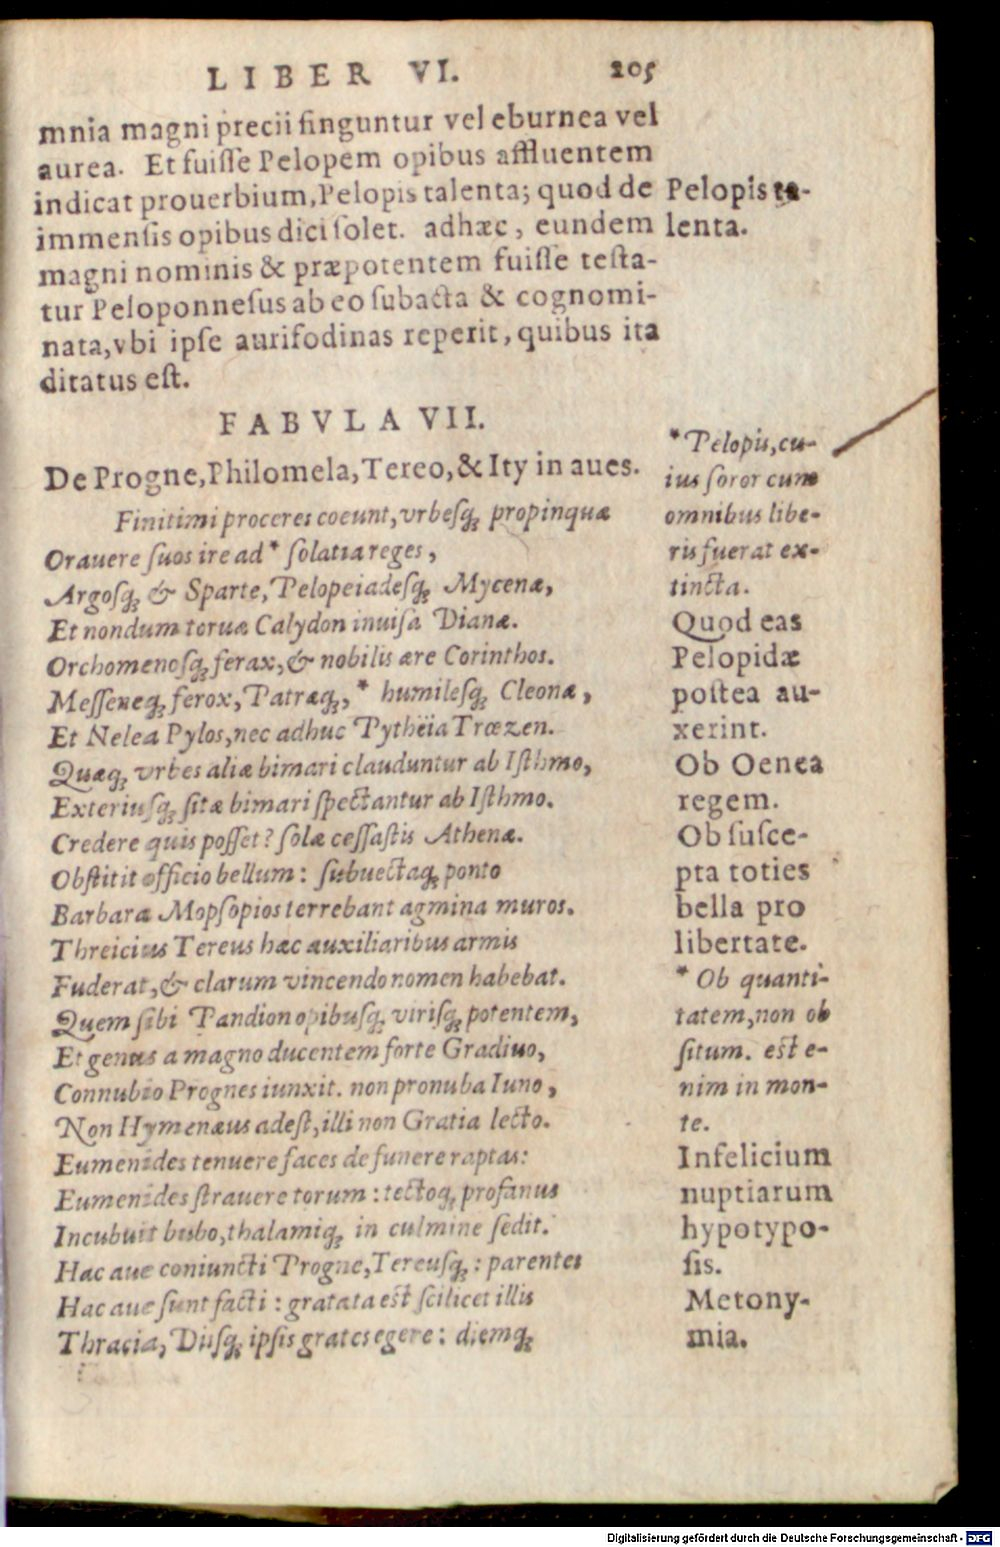 LIBER VI. 205
mnia magni precii finguntur vel eburnea vel
aurea. Et fuiſſe Pelopem opibus affluentem
indicat prouerbium, Pelopis talenta; quod de
immenſis opibus dici ſolet. adhæc, eundem
magni nominis & præpotentem fuiſſe teſta-
tur Peloponneſus ab eo ſubacta & cognomi-
nata, vbi ipſe aurifodinas reperit, quibus ita
ditatus eſt.
Pelopis ta-
lenta.
FABVLA VII.
De Progne, Philomela, Tereo, & Ity in aues.
Finitimi proceres coeunt, vrbesq́; propinquæ
Orauere ſuos ire ad * ſolatia reges,
Argosq́; & Sparte, Pelopeiadesq́; Mycenæ,
Et nondum toruæ Calydon inuiſa Dianæ.
Orchomenosq́; ferax, & nobilis ære Corinthos.
Meſſeneq́; ferox, Patræq́;, * humilesq́; Cleonæ,
Et Nelea Pylos, nec adhuc Pytheïa Trœzen.
Quæq́; vrbes aliæ bimari clauduntur ab Iſthmo,
Exteriusq́; ſitæ bimari ſpectantur ab Iſthmo.
Credere quis poſſet? ſolæ ceſſaſtis Athenæ.
Obſtitit officio bellum: ſubuectaq́; ponto
Barbara Mopſopios terrebant agmina muros.
Threicius Tereus hæc auxiliaribus armis
Fuderat, & clarum vincendo nomen habebat.
Quem ſibi Pandion opibusq́; virisq́; potentem,
Et genus a magno ducentem forte Gradiuo,
Connubio Prognes iunxit. non pronuba Iuno,
Non Hymenæus adeſt, illi non Gratia lecto.
Eumenides tenuere faces de funere raptas:
Eumenides ſtrauere torum: tectoq́; profanus
Incubuit bubo, thalamiq́; in culmine ſedit.
Hac aue coniuncti Progne, Tereusq́;: parentes
Hac aue ſunt facti: gratata eſt ſcilicet illis
Thracia, Diisq́; ipſis grates egere: diemq́;
* Pelopis, cu-
ius ſoror cum
omnibus libe-
ris fuerat ex-
tincta.
Quod eas
Pelopidæ
poſtea au-
xerint.
Ob Oenea
regem.
Ob ſuſce-
pta toties
bella pro
libertate.
* Ob quanti-
tatem, non ob
ſitum. eſt e-
nim in mon-
te.
Infelicium
nuptiarum
hypotypo-
ſis.
Metony-
mia.
Digitalisierung gefördert durch die Deutsche Forschungsgemeinschaft - DFG